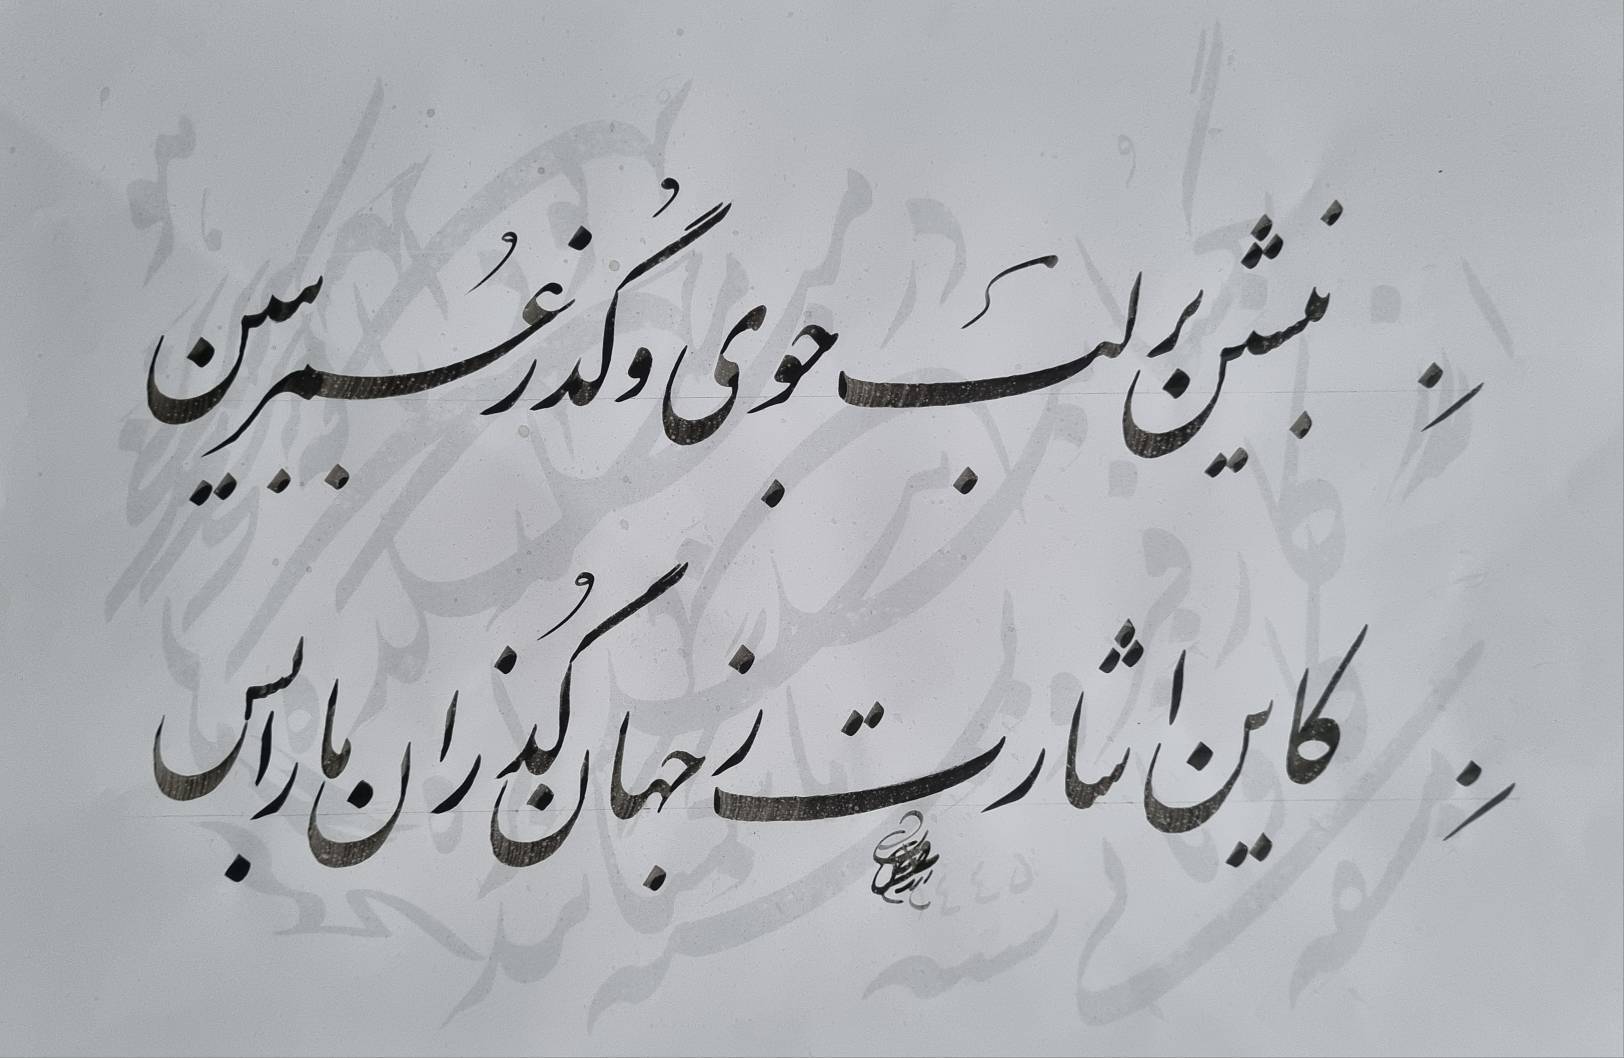 بنشین بر لب جوی و گذر عُمر ببین
کاین اشارت ز جهان گُذران ما را بس